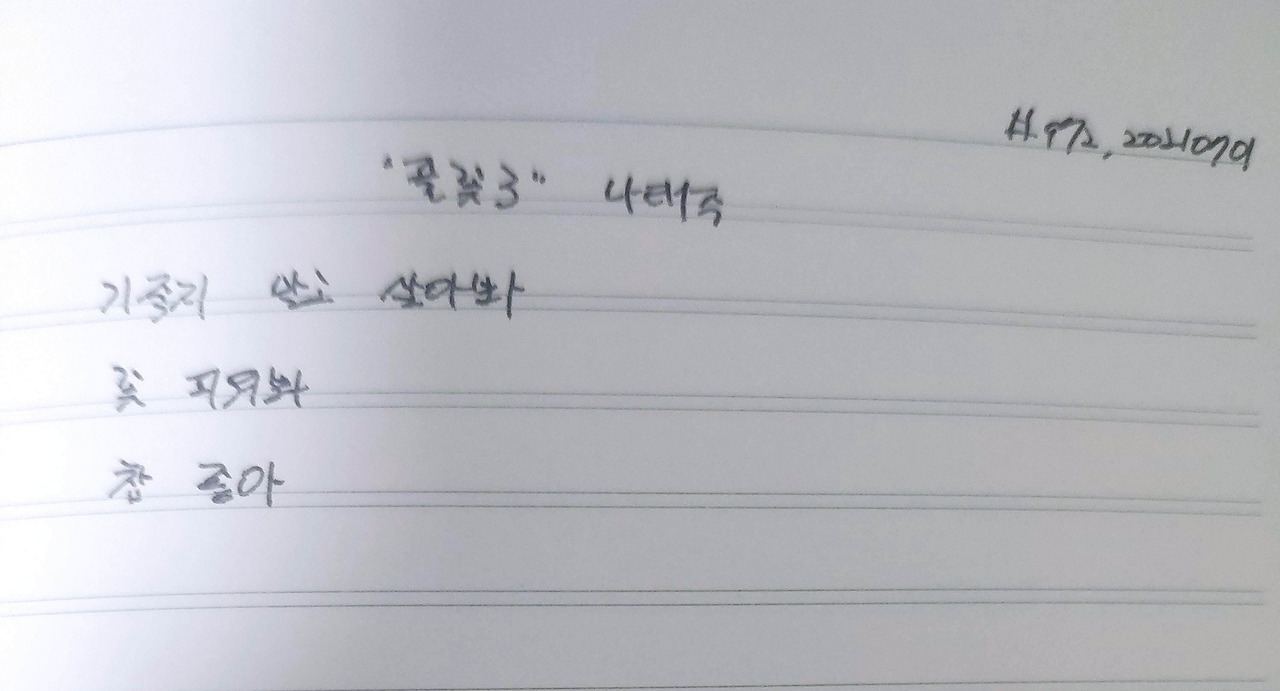 #972, 20210701
"풀꽃3" 나태주
기죽지 말고 살아봐
꽃 피워봐
참 좋아